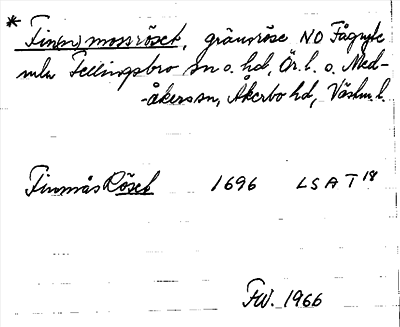 * Fin(n)mossröset, gränsröse NO Fågryte
mln Fellingsbro sn o. hd, Ör. l. o. Med-
åkers sn, Åkerbo hd, Västm. l.
Finmås Röset 1696 LSA T 18
FW. 1966